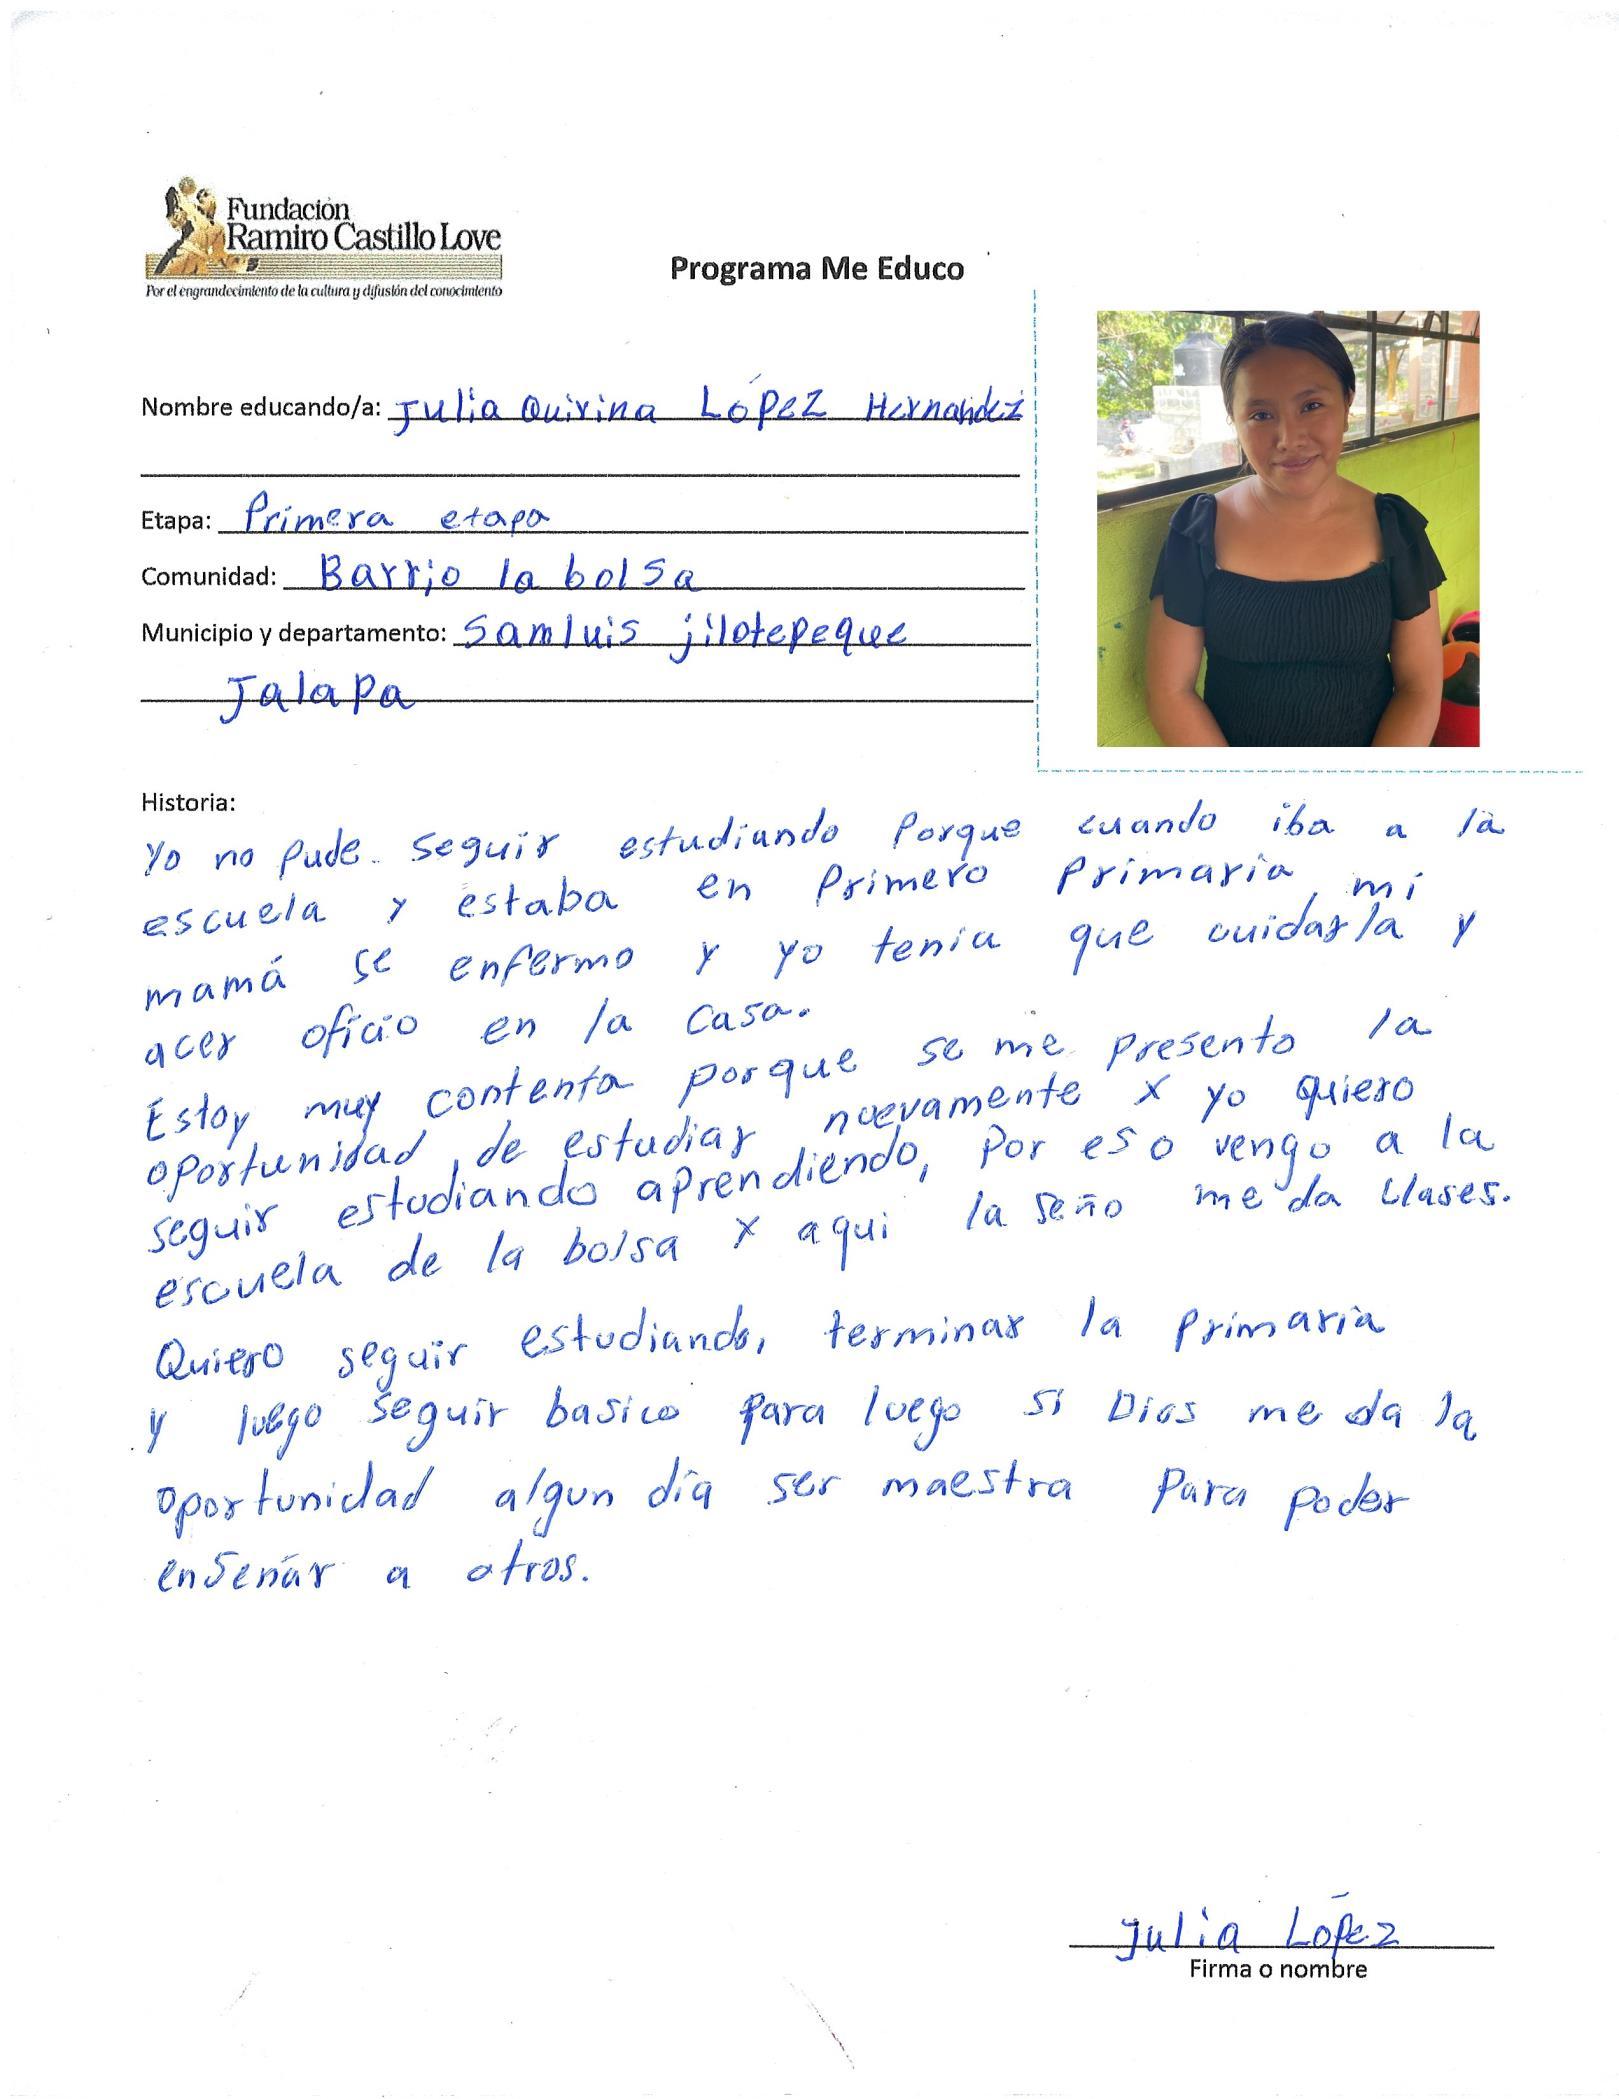 Fundación
Ramiro Castillo Love
Por el engrandecimiento de la cultura y difusión del conocimiento
Programa Me Educo
Nombre educando/a: Julia Quirina López Hernandez
Etapa: Primera etapa
Comunidad: Barrio la bolsa
Municipio y departamento: Samluis jilotepeque
Jalapa
Historia:
Yo no pude seguir estudiando porque cuando iba a la
escuela y estaba en Primero Primaria, mi
mamá se enfermo y yo tenia que cuidarla y
acer oficio en la casa.
Estoy muy contenta porque se me presento la
oportunidad, de estudiar nuevamente y yo quiero
seguir estudiando aprendiendo, por eso vengo a la
escuela de la bolsa y aqui la seño me da clases.
Quiero seguir estudiando, terminar la primaria
y luego seguir basico para luego si Dios me da la
oportunidad algun día ser maestra para poder
enseñar a otros.
Julia López
Firma o nombre